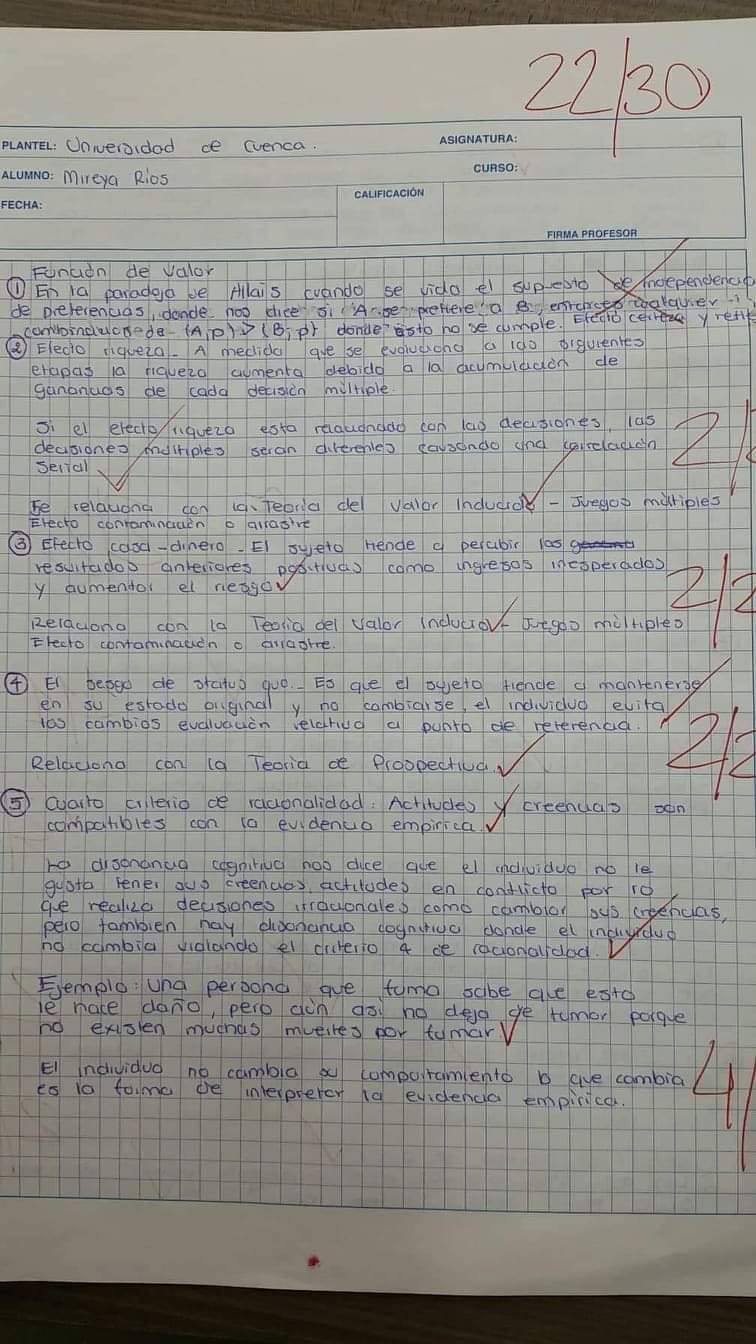 22/30
PLANTEL: Universidad de Cuenca.
ASIGNATURA:
ALUMNO: Mireya Rios
CURSO:
FECHA:
CALIFICACIÓN
FIRMA PROFESOR
Función de valor
① En la paradoja de Allais cuando se viola el supuesto de independencia
de preferencias, donde nos dice si A se prefiere a B, entonces cualquier
(A,p) > (B,p) donde esto no se cumple. Efecto certeza y
② Efecto riqueza.- A medida que se evoluciona a las siguientes
etapas la riqueza aumenta debido a la acumulación de
ganancias de cada decisión múltiple.
Si el efecto riqueza esta relacionado con las decisiones, las
decisiones múltiples seran diferentes causando una correlación
serial
2/
Se relaciona con la Teoria del Valor Inducido - Juegos múltiples
Efecto contaminación o arrastre
③ Efecto casa-dinero.- El sujeto tiende a percibir los
resultados anteriores positivas como ingresos inesperados
y aumentar el riesgo
2/2
Relaciona con la Teoria del Valor Inducido - Juegos múltiples
Efecto contaminación o arrastre.
④ El sesgo de status quo.- Es que el sujeto tiende a mantenerse
en su estado original y no cambiarse, el individuo evita
los cambios evaluación relativa a punto de referencia.
2/2
Relaciona con la Teoria de Prospectiva.
⑤ Cuarto criterio de racionalidad: Actitudes y creencias son
compatibles con la evidencia empirica.
La disonancia cognitiva nos dice que el individuo no le
gusta tener sus creencias, actitudes en conflicto por lo
que realiza decisiones irracionales como cambiar sus creencias,
pero tambien hay disonancia cognitiva donde el individuo
no cambia violando el criterio 4 de racionalidad.
Ejemplo: Una persona que fuma sabe que esto
le hace daño, pero aún asi no deja de fumar porque
no existen muchas muertes por fumar.
El individuo no cambia su comportamiento lo que cambia
es la forma de interpretar la evidencia empírica.
4/